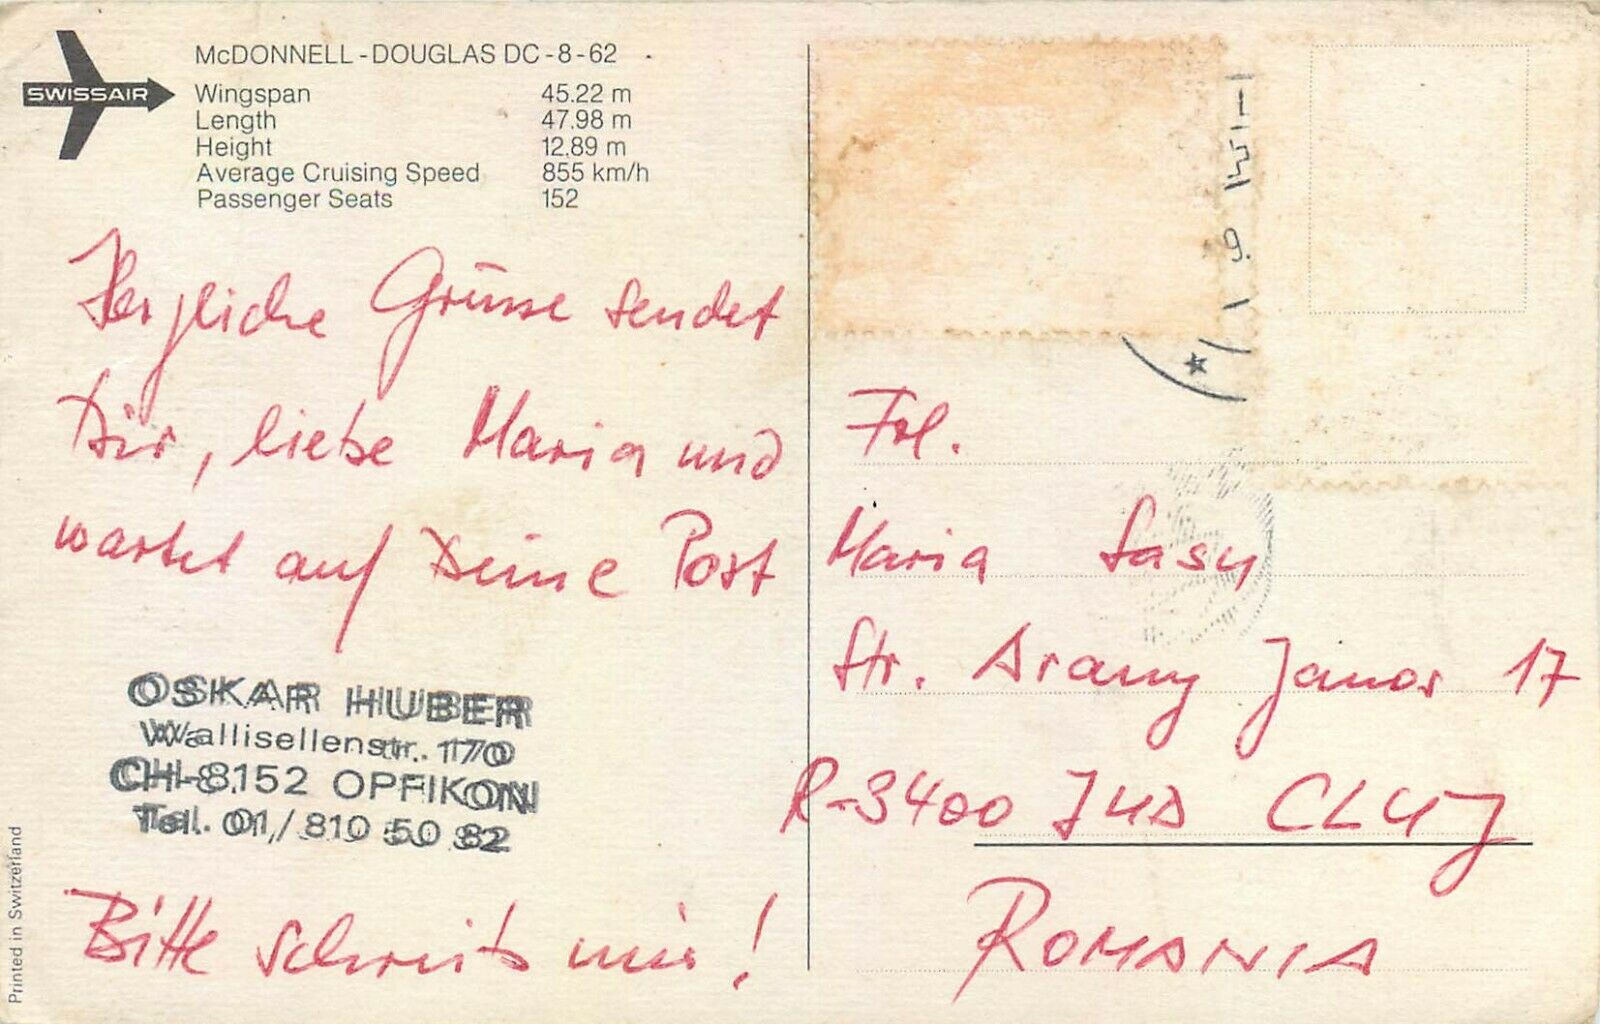 SWISSAIR
McDONNELL-DOUGLAS DC-8-62
Wingspan 45.22 m
Length 47.98 m
Height 12.89 m
Average Cruising Speed 855 km/h
Passenger Seats 152
Herzliche Grüsse sendet
Dir, liebe Maria und
wartet auf Deine Post
OSKAR HUBER
Wallisellenstr. 170
CH-8152 OPFIKON
Tel. 01/810 50 82
Bitte schreib mir!
Printed in Switzerland
Frl.
Maria Sasu
Str. Arany Janos 17
R-3400 JUD CLUJ
ROMANIA